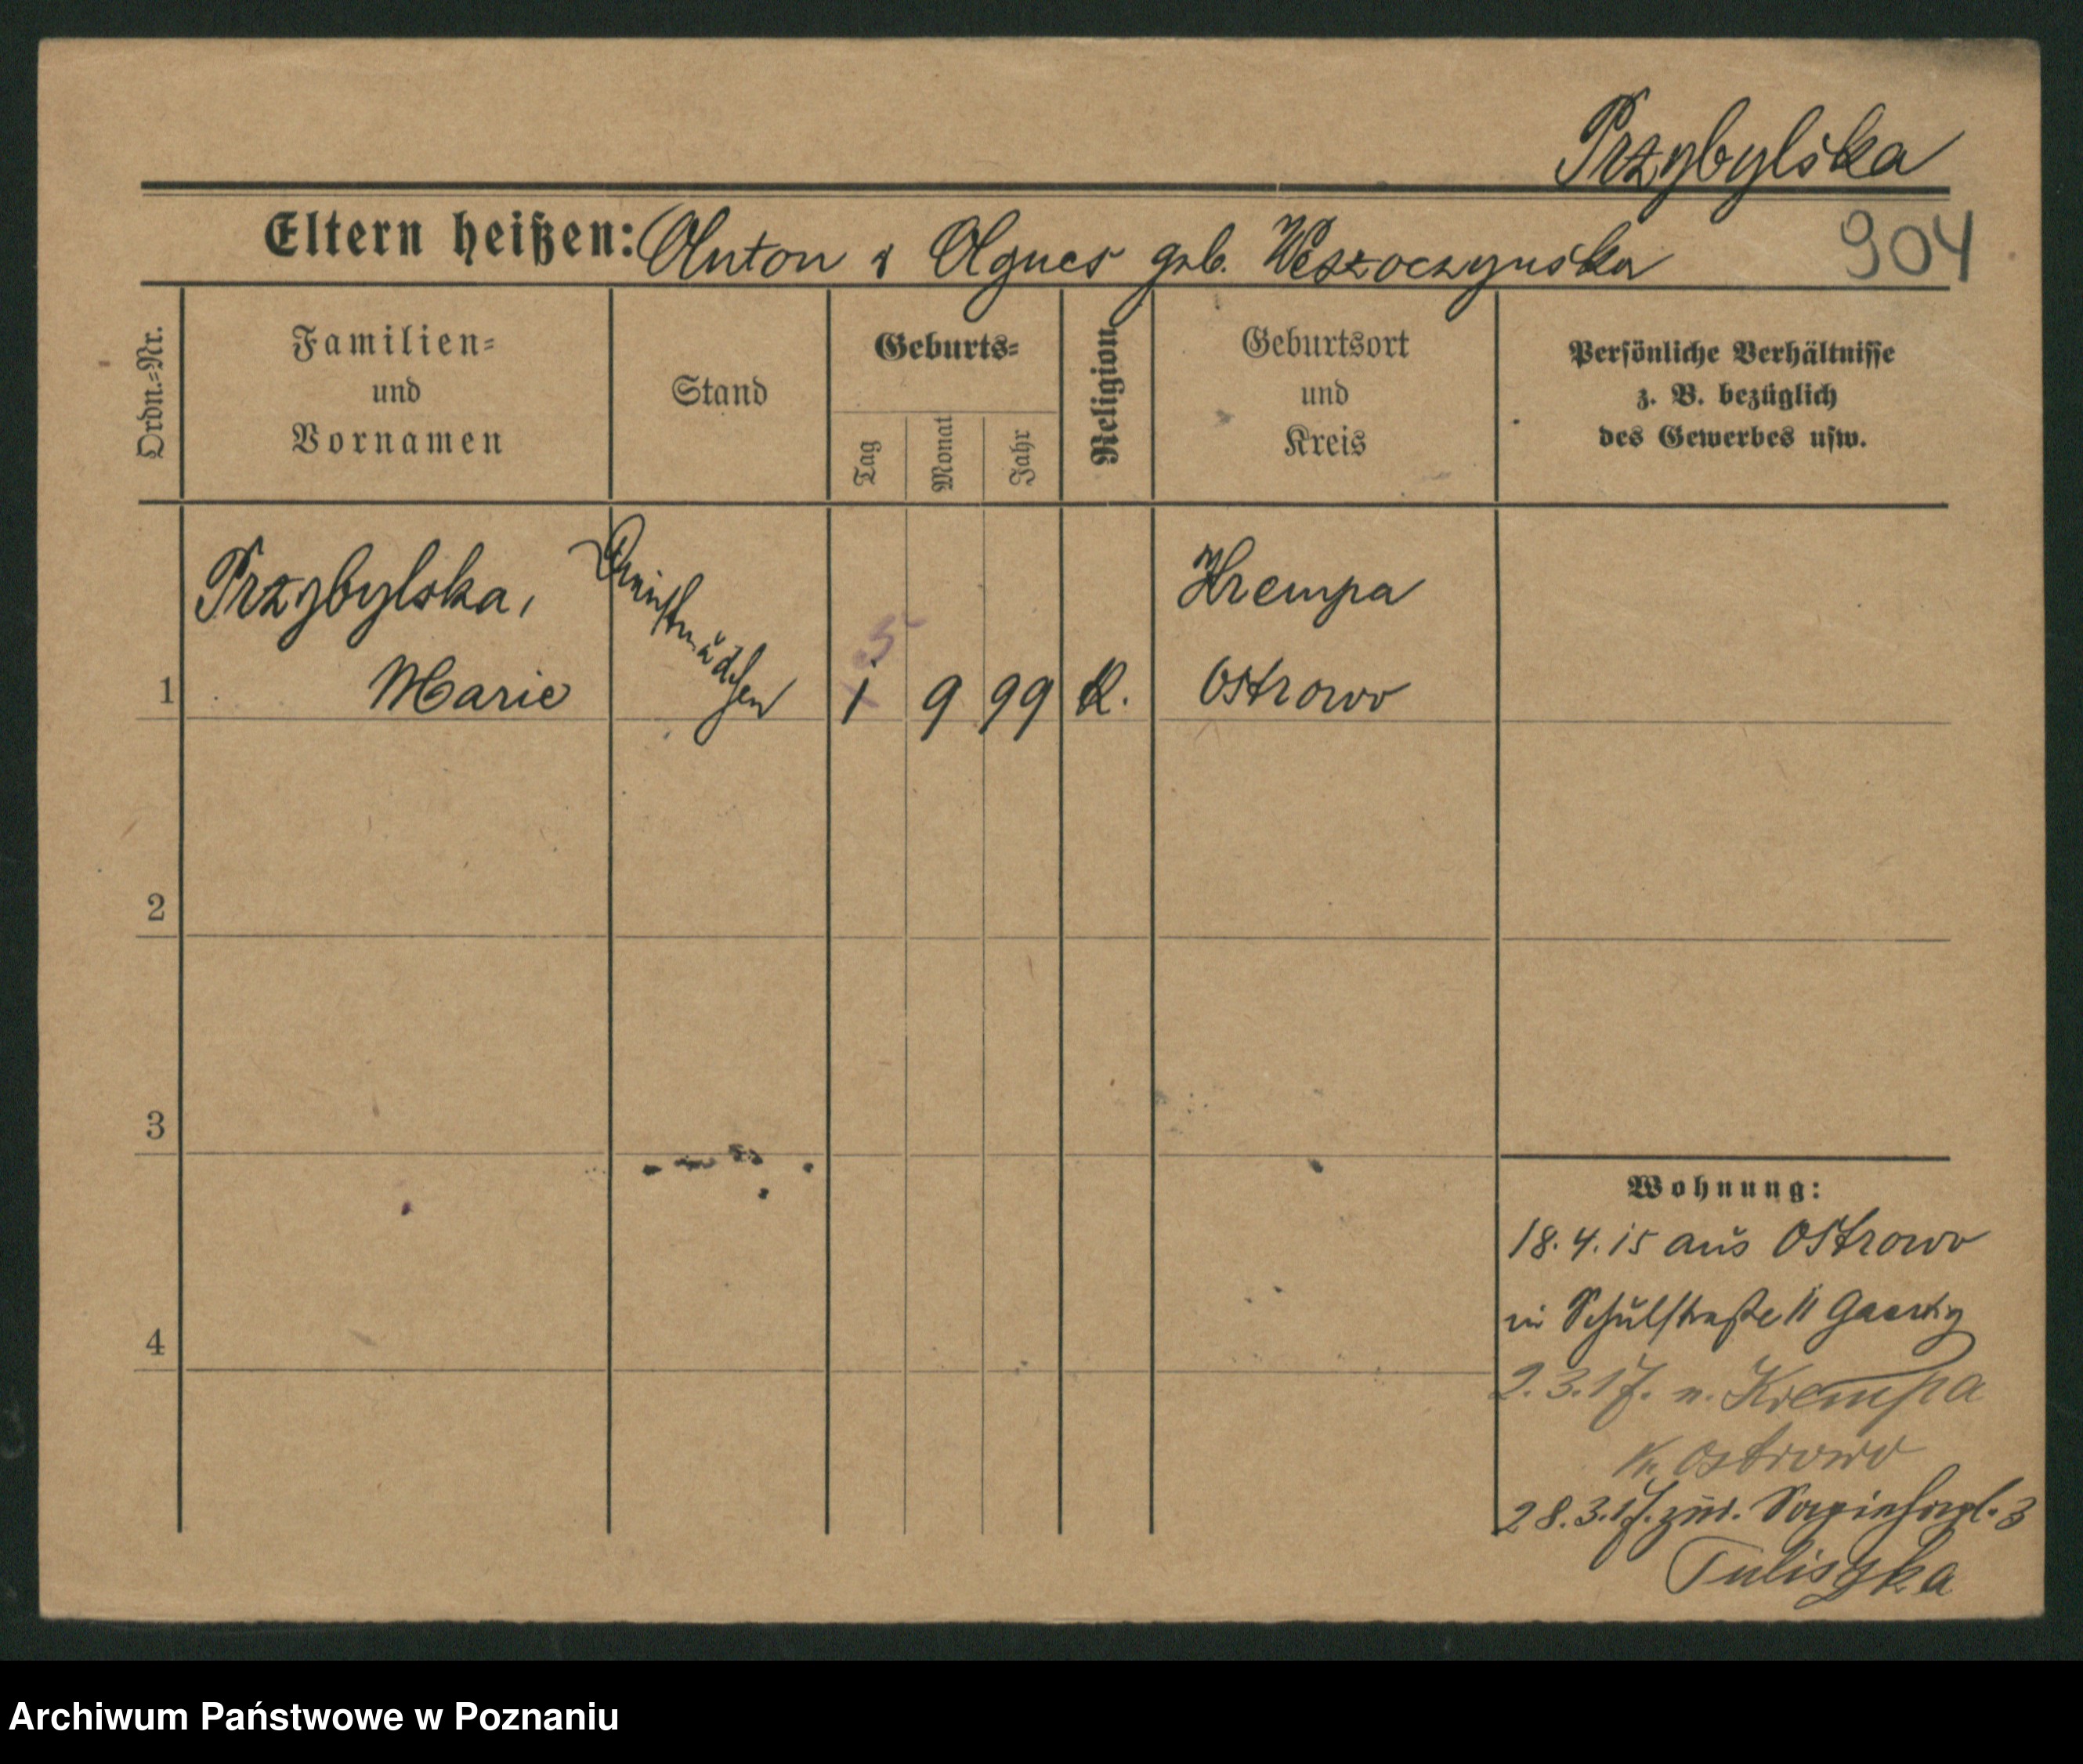 Przybylska
Eltern heißen: Anton & Agnes geb. Weszoczynska
904
Ordn.=Nr.
Familien=
und
Vornamen
Stand
Geburts=
Tag
Monat
Jahr
Religion
Geburtsort
und
Kreis
Persönliche Verhältnisse
z. B. bezüglich
des Gewerbes usw.
1
Przybylska,
Marie
Dienstmädchen
5
1 9 99 K.
Krempa
Ostrowo
2
3
4
Wohnung:
18.4.15 aus Ostrowo
in Schulstraße 11
2.3.17. n. Krempa
Kr. Ostrowo
28.3.17. zur. Sapiehapl. 3
Tuliszka
Archiwum Państwowe w Poznaniu